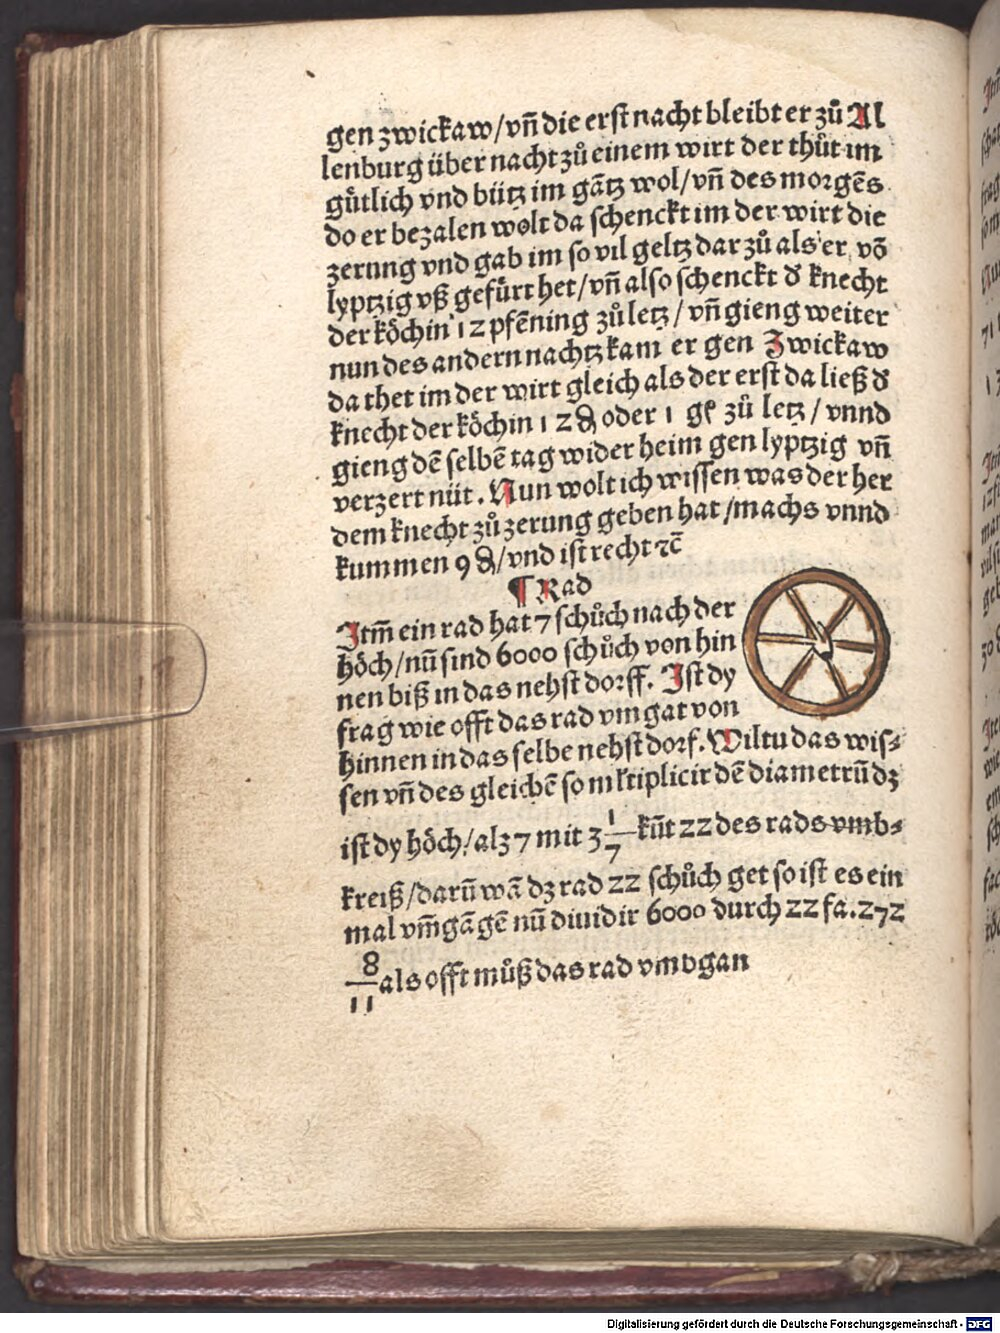 gen zwickaw/vn̄ die erst nacht bleibt er zů Al
lenburg über nacht zů einem wirt der thůt im
gůtlich vnd bütz im gātz wol/vn̄ des morgēs
do er bezalen wolt da schenckt im der wirt die
zerung vnd gab im so vil geltz dar zů als er vō
lyptzig vß gefürt het/vn̄ also schenckt d᷑ knecht
der köchin 12 pfēning zů letz/vn̄ gieng weiter
nun des andern nachtz kam er gen Zwickaw
da thet im der wirt gleich als der erst da ließ d᷑
knecht der köchin 12 ₰ oder 1 gꝭ zů letz/vnnd
gieng dē selbē tag wider heim gen lyptzig vn̄
verzert nüt. Nun wolt ich wissen was der her
dem knecht zů zerung geben hat/machs vnnd
kummen 9 ₰/vnd ist recht ⁊c̄
¶ Rad
Itm̄ ein rad hat 7 schůch nach der
höch/nū sind 6000 schůch von hin
nen biß in das nehst dorff. Ist dy
frag wie offt das rad vmgat von
hinnen in das selbe nehst dorf. Wiltu das wis⸗
sen vn̄ des gleichē so mltiplicir dē diametrū dz
ist dy höch/alz 7 mit 3 1/7 kūt 22 des rads vmb⸗
kreiß/darū wā dz rad 22 schůch get so ist es ein
mal vm̄gāgē nū diuidir 6000 durch 22 fa. 272
8/11 als offt můß das rad vmbgan
Digitalisierung gefördert durch die Deutsche Forschungsgemeinschaft - DFG